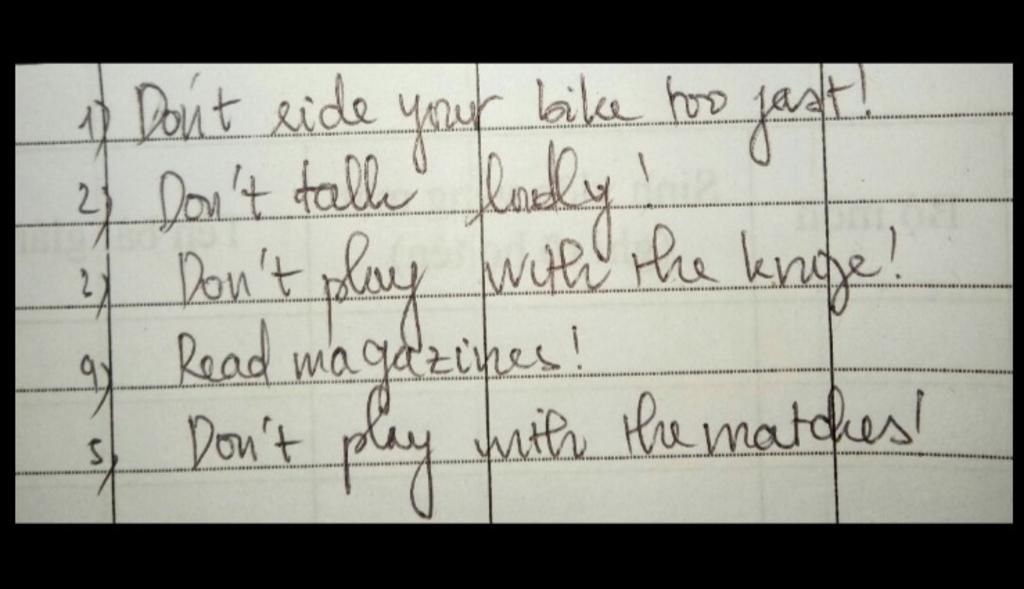 1) Don't ride your bike too fast!
2) Don't talk loudly!
3) Don't play with the knife!
4) Read magazines!
5) Don't play with the matches!